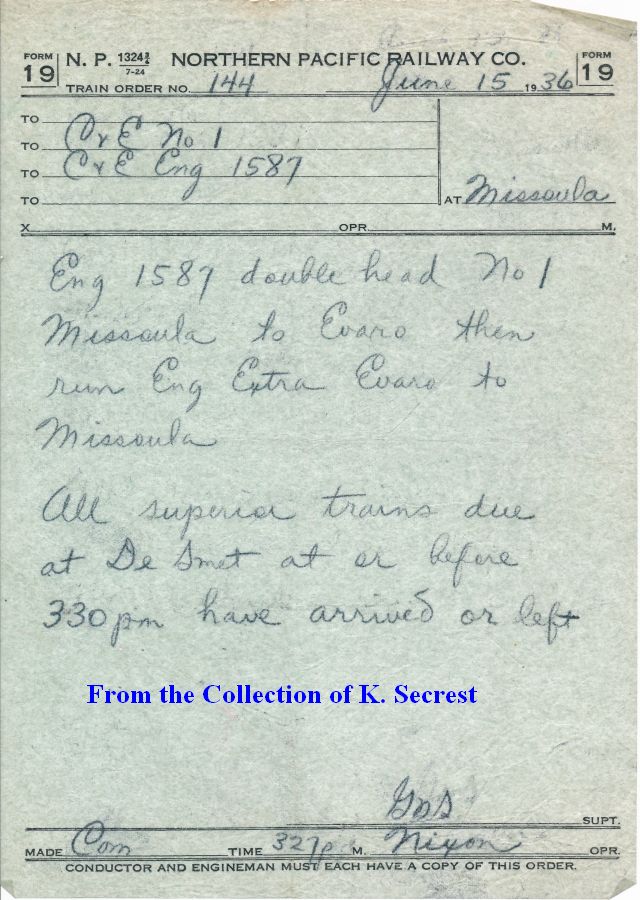 FORM 19 N. P. 1324¾ 7-24 NORTHERN PACIFIC RAILWAY CO. FORM 19
TRAIN ORDER NO. 144 June 15 1936
TO
TO C & E No 1
TO C & E Eng 1587
TO AT Missoula
X OPR. M.
Eng 1587 double head No 1
Missoula to Evaro then
run Eng Extra Evaro to
Missoula
All superior trains due
at De Smet at or before
330 pm have arrived or left
From the Collection of K. Secrest
SUPT.
MADE Com TIME 327p M. Nixon OPR.
CONDUCTOR AND ENGINEMAN MUST EACH HAVE A COPY OF THIS ORDER.